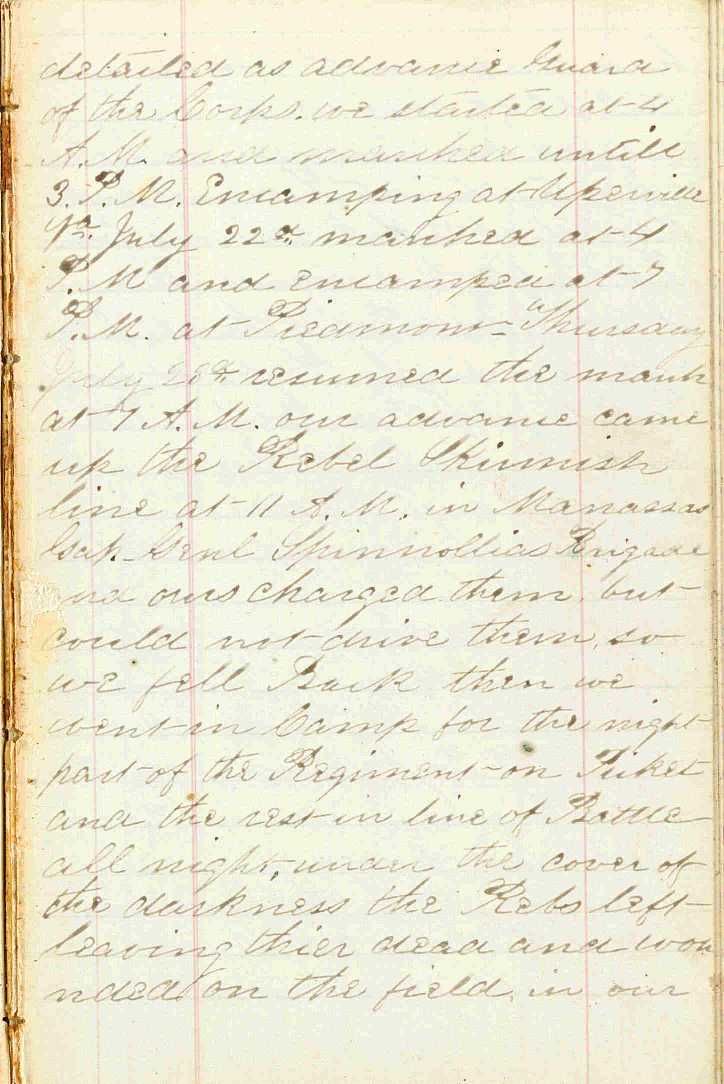 detailed as advance Guard
of the Corps. we started at 4
A. M. and marched untill
3. P. M. Encamping at Uperville
Va. July 22d. marched at 4
P. M and encamped at 7
P. M. at Piedmont - Thursday
July 23d. resumed the march
at 7 A. M. our advance came
up the Rebel Skirmish
line at 11 A. M. in Manassas
Gap. Genl Spinnollias Brigade
and ours charged them, but
could not drive them, so
we fell Back then we
went in Camp for the night
part of the Regiment on Picket
and the rest in line of Battle
all night, under the cover of
the darkness the Rebs left
leaving thier dead and wou
nded on the field, in our